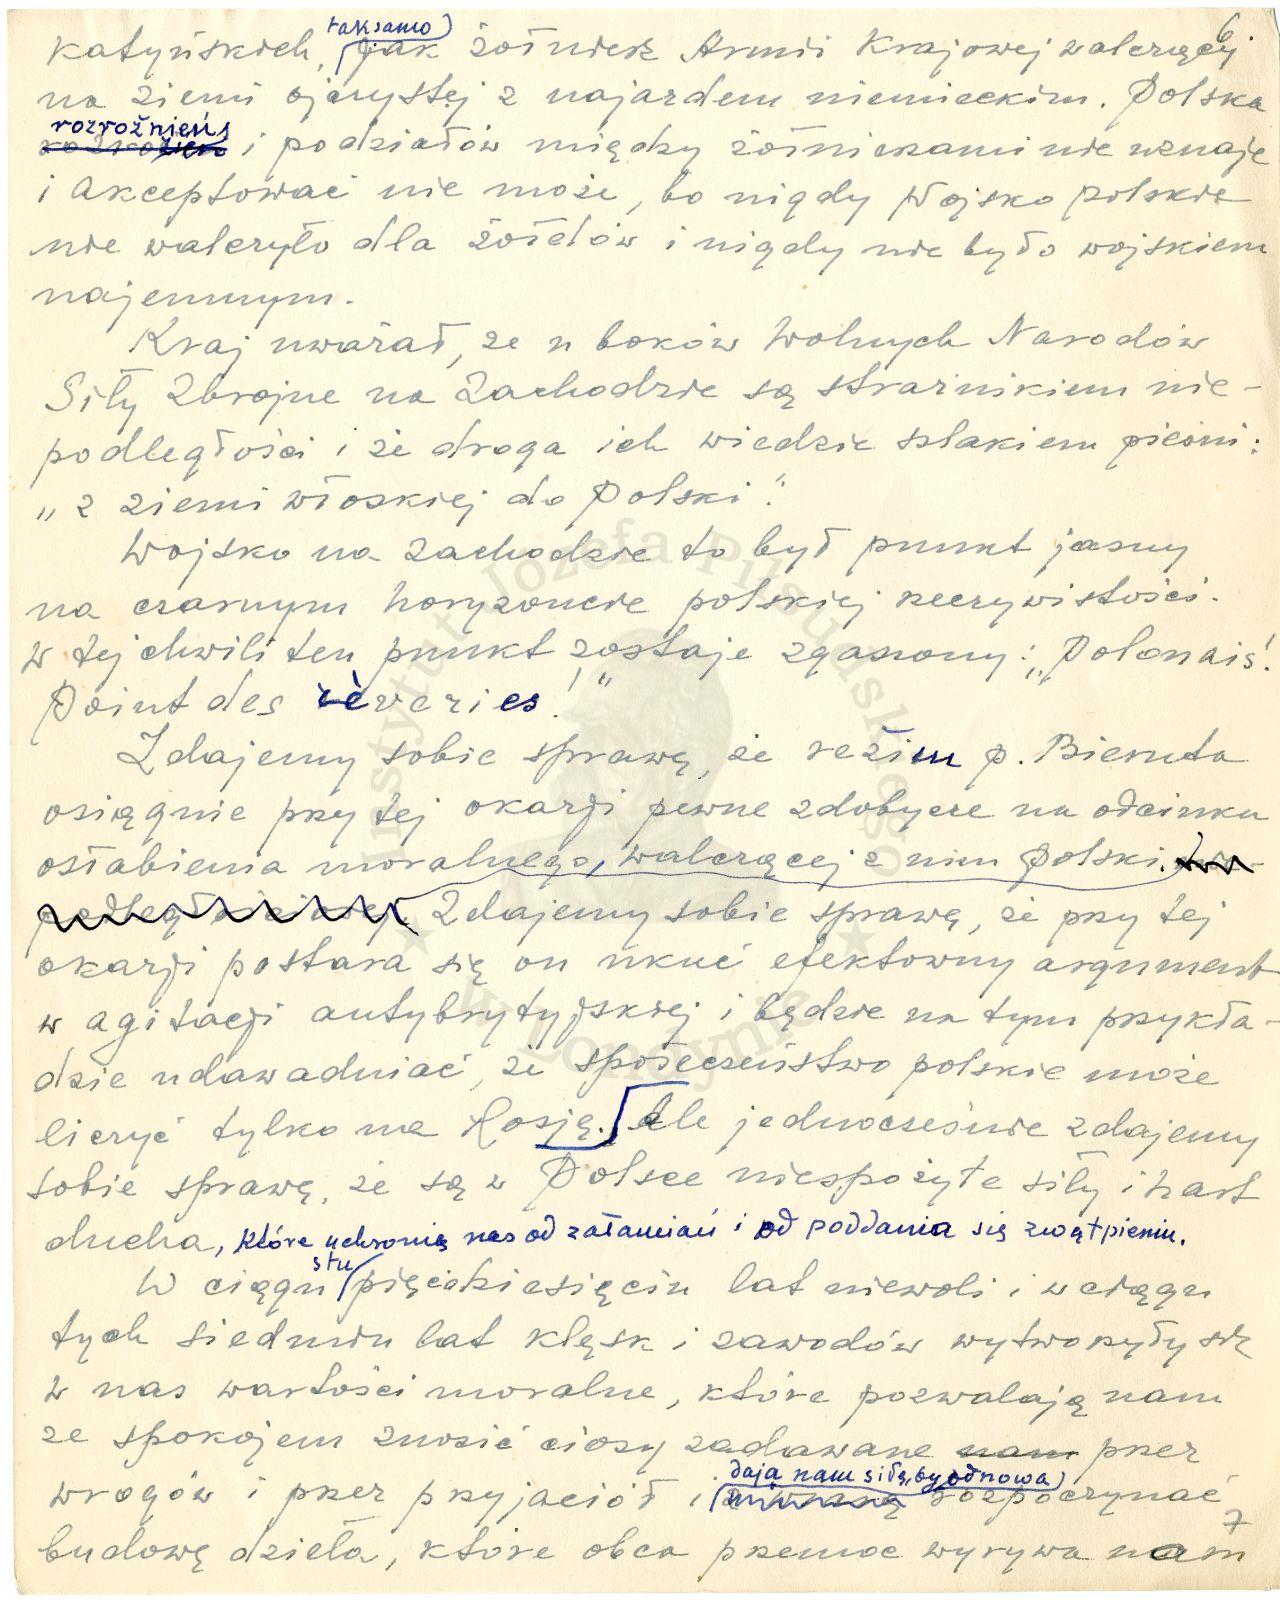 6
katyńskich, taksamo jak żołnierz Armii Krajowej walczącej
na ziemi ojczystej z najazdem niemieckim. Polska
rozrożnień i podziałów między żołnierzami nie uznaje
i akceptować nie może, bo nigdy Wojsko polskie
nie walczyło dla żołdów i nigdy nie było wojskiem
najemnym.
Kraj uważał, że u boków Wolnych Narodów
Siły Zbrojne na Zachodzie są strażnikiem nie-
podległości i że droga ich wiedzie szlakiem pieśni:
„z ziemi włoskiej do Polski".
Wojsko na zachodzie to był punkt jasny
na czarnym horyzoncie polskiej rzeczywistości.
W tej chwili ten punkt zostaje zgaszony: „Polonais!
Point des rèveries!"
Zdajemy sobie sprawę, że reżim p. Bieruta
osiągnie przy tej okazji pewne zdobycze na odcinku
osłabienia moralnego, walczącej z nim Polski.
Zdajemy sobie sprawę, że przy tej
okazji postara się on ukuć efektowny argument
w agitacji antybrytyjskiej i będzie na tym przykła-
dzie udawadniać, że społeczeństwo polskie może
liczyć tylko na Rosję. Ale jednocześnie zdajemy
sobie sprawę, że są w Polsce niespożyte siły i hart
ducha, które uchronią nas od załamań i od poddania się zwątpieniu.
W ciągu stu pięćdziesięciu lat niewoli i w ciągu
tych siedmiu lat klęsk i zawodów wytworzyły się
w nas wartości moralne, które pozwalają nam
ze spokojem znosić ciosy zadawane nam przez
wrogów i przez przyjaciół i dają nam siłę, by od nowa rozpoczynać
budowę dzieła, które obca przemoc wyrywa nam
7
Instytut Józefa Piłsudskiego
w Londynie